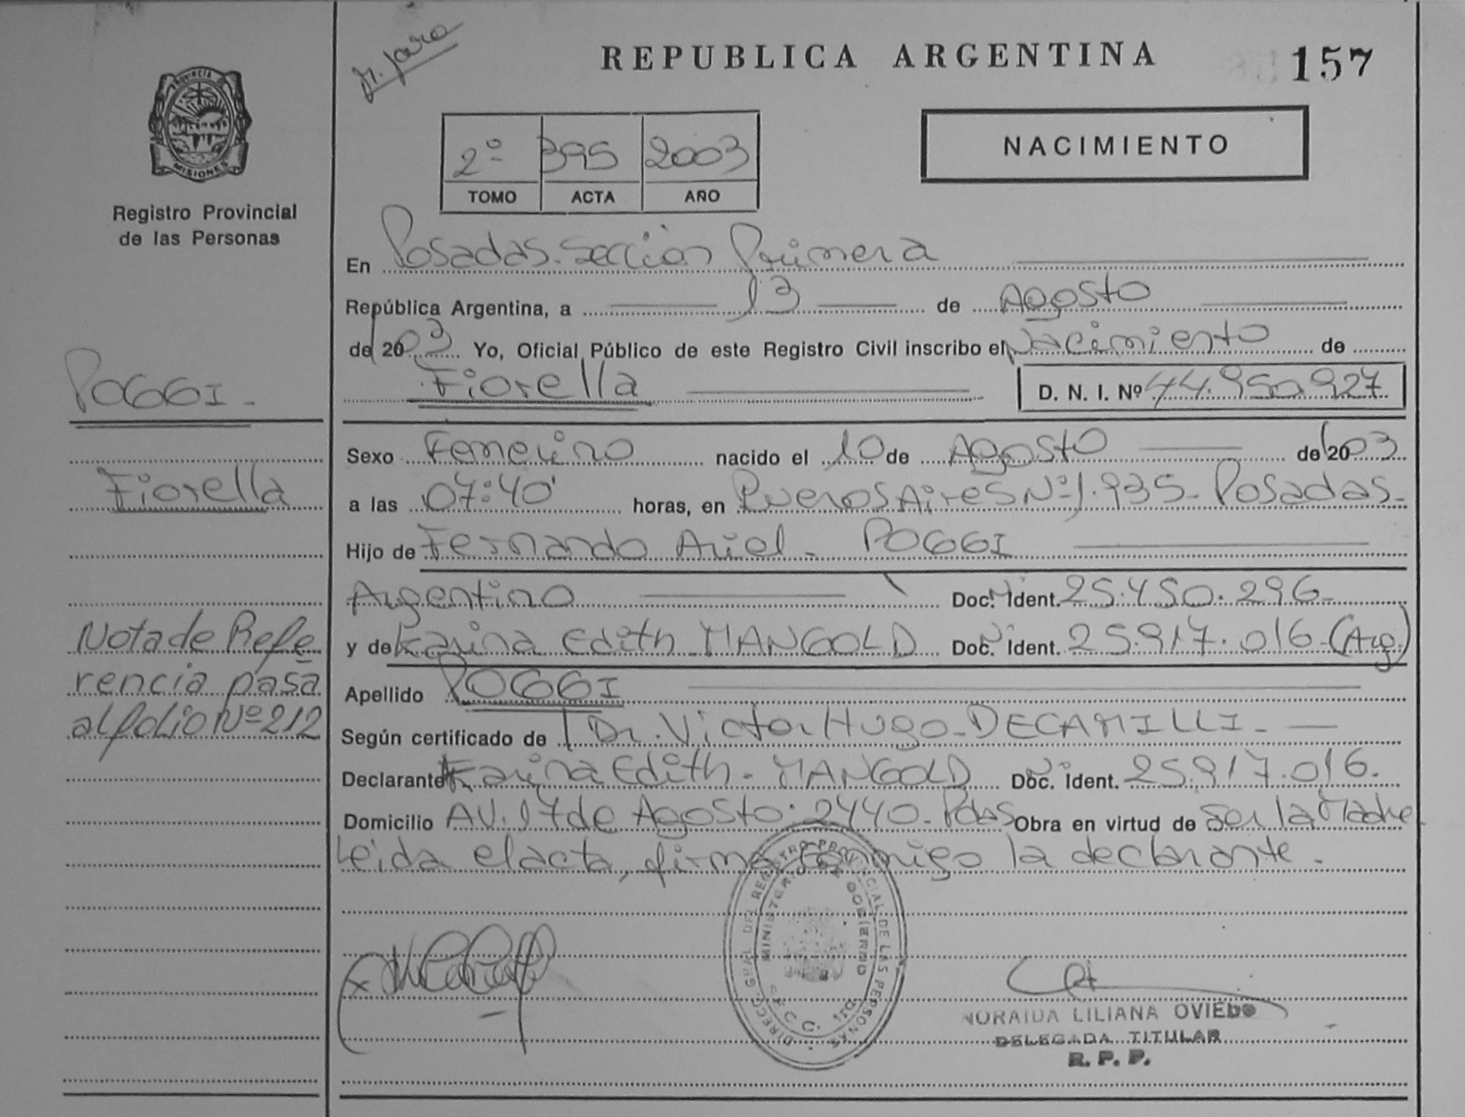 REPUBLICA ARGENTINA
157
PROVINCIA DE
MISIONES
Registro Provincial
de las Personas
2º 395 2003
TOMO ACTA AÑO
NACIMIENTO
En Posadas. Sección Primera
República Argentina, a 13 de Agosto
de 2003 Yo, Oficial Público de este Registro Civil inscribo el Nacimiento de
Fiorella D. N. I. Nº 44.950.927
POGGI.
Fiorella
Sexo Femenino nacido el 10 de Agosto de 2003
a las 07:40' horas, en Buenos Aires Nº 1.935- Posadas-
Hijo de Fernando Ariel. POGGI
Argentino Doc. Ident. 25.450.296-
y de Karina Edith MANGOLD Doc. Ident. 25.917.016-(Arg)
Apellido POGGI
Según certificado de Dr. Victor Hugo-DECAMILLI.-
Declarante Karina Edith-MANGOLD Doc. Ident. 25.917.016.
Domicilio AV. 17 de Agosto. 2440. Pdas Obra en virtud de ser la Madre
Leida el acta, firma conmigo la declarante.
Nota de Refe
rencia pasa
al folio Nº 212
DIRECC. GRAL. DEL REGISTRO PROVINCIAL DE LAS PERSONAS
MINISTERIO DE GOBIERNO
NORAIDA LILIANA OVIEDO
DELEGADA TITULAR
R. P. P.